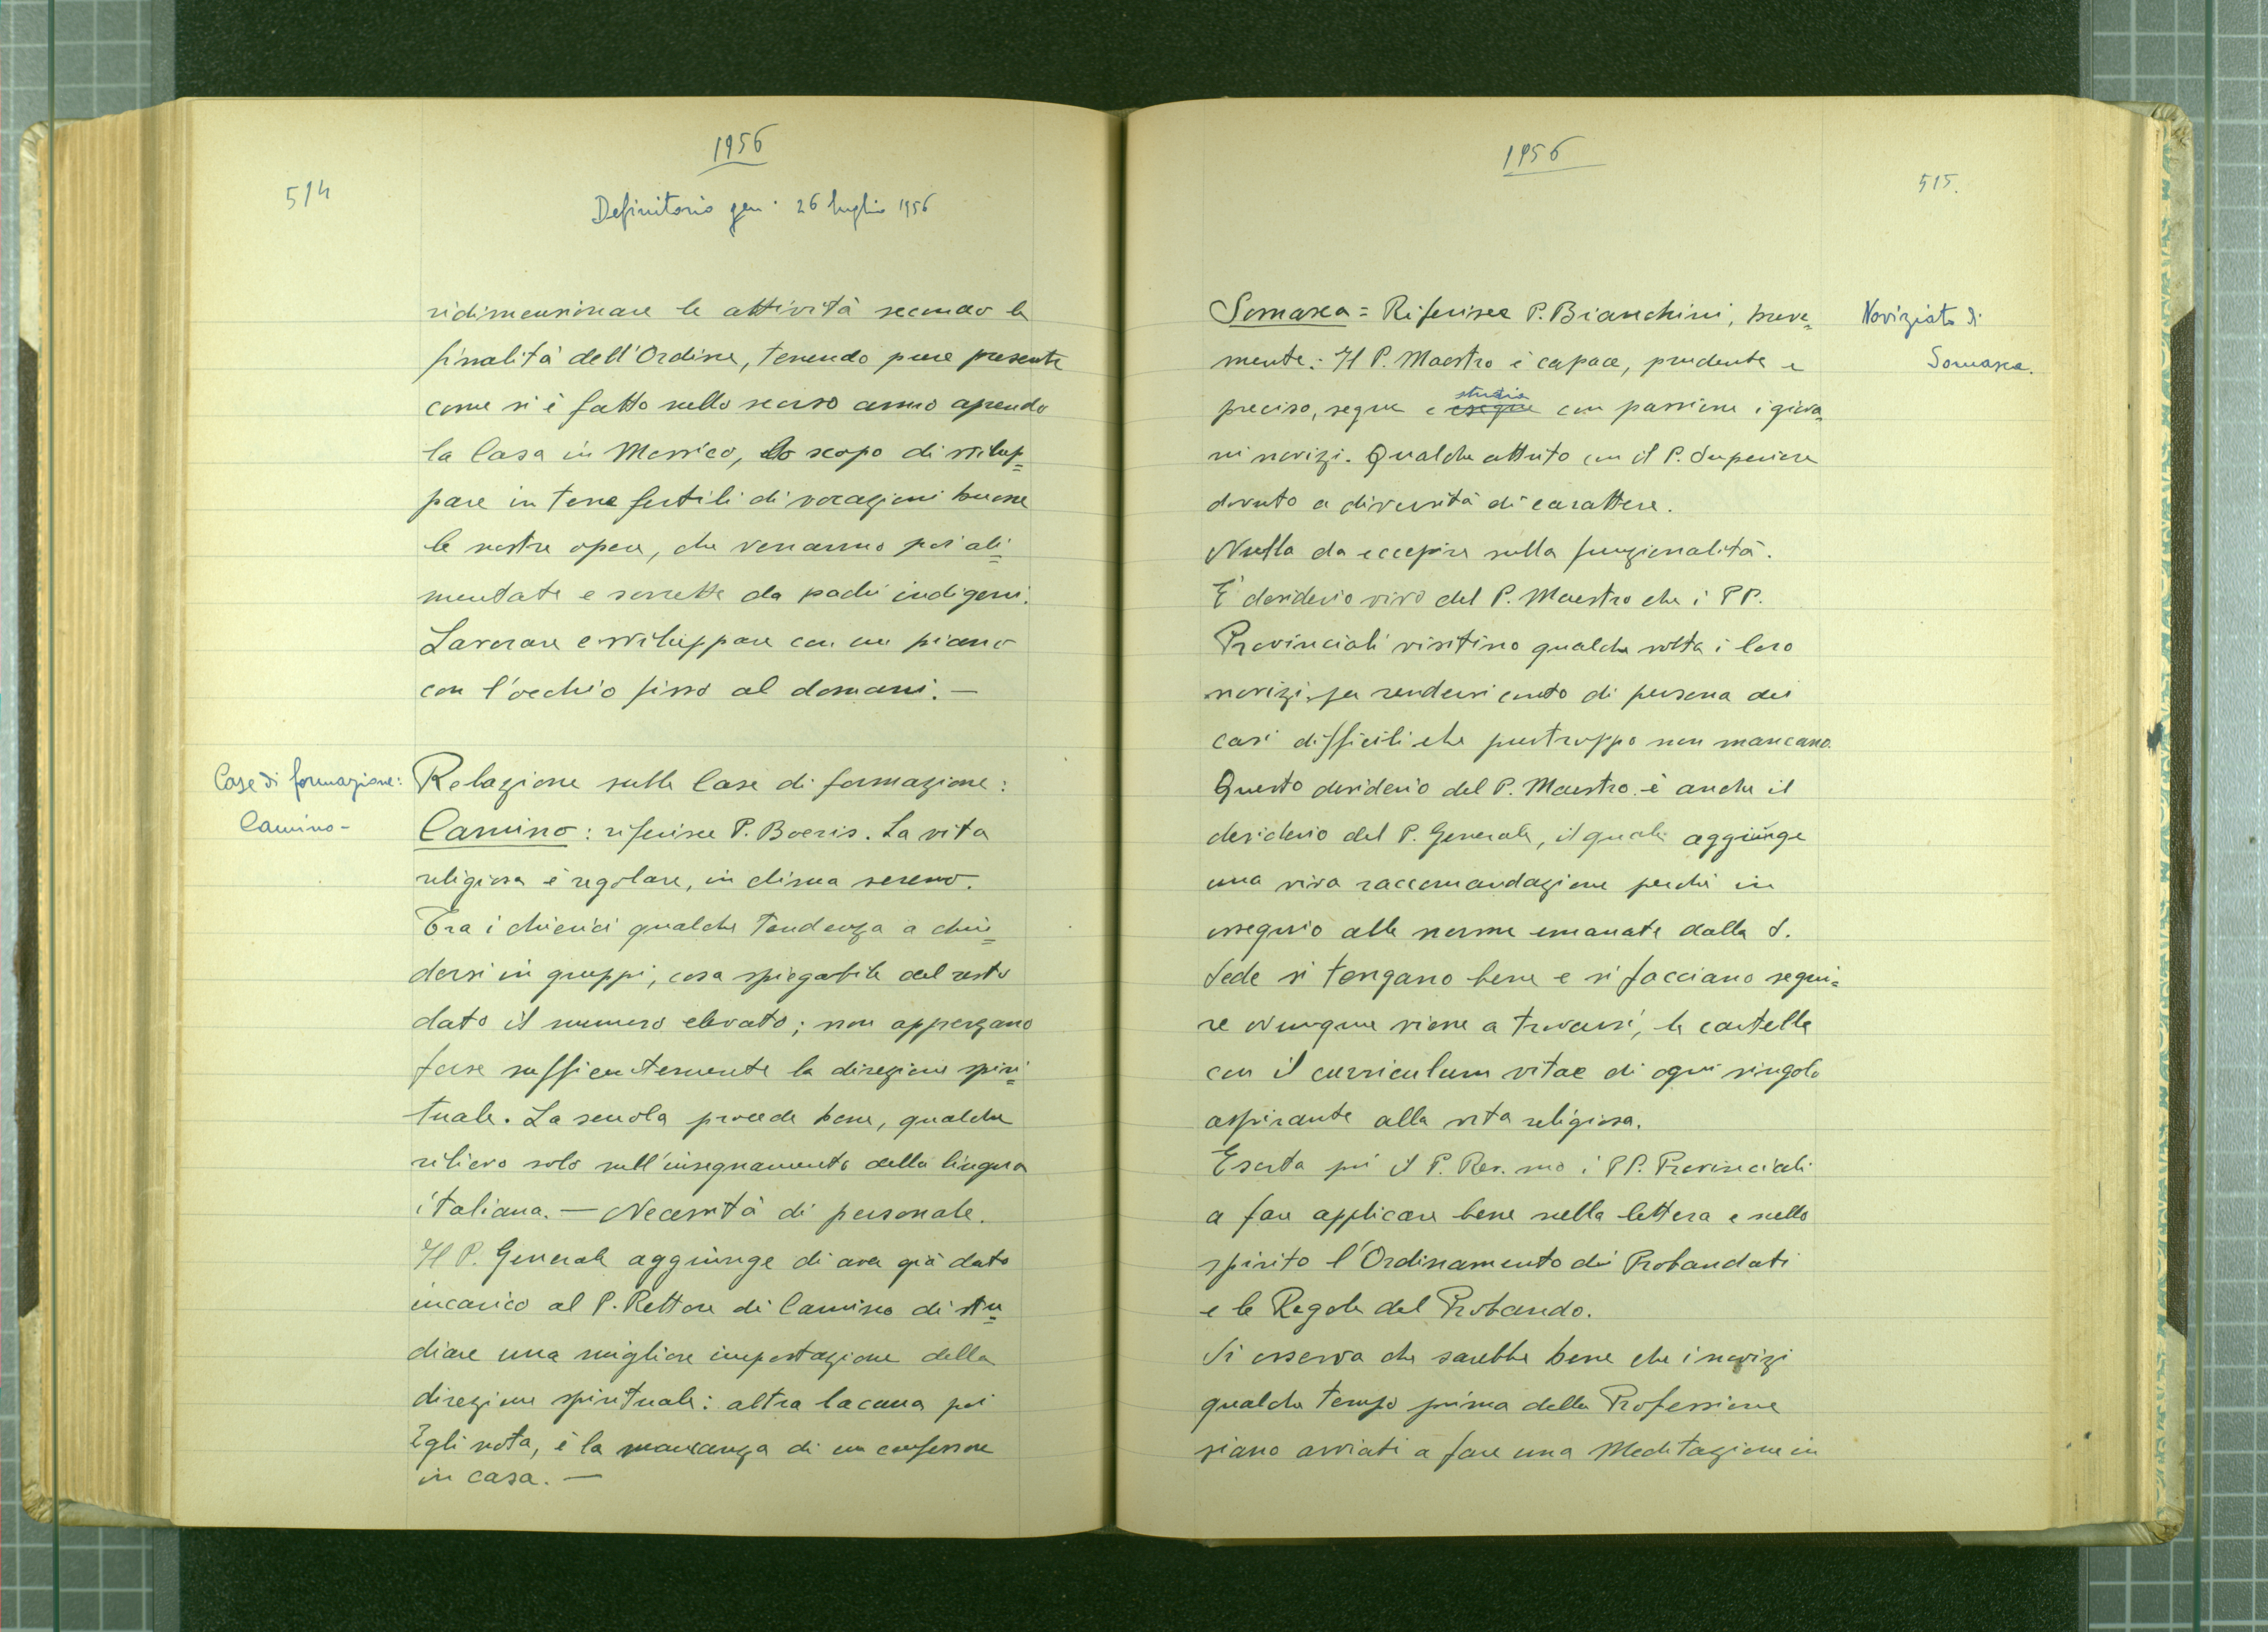 1956
514
Definitorio gen. 26 luglio 1956
ridimensionare le attività secondo le
finalità dell'Ordine, tenendo pure presente
come si è fatto nello scorso anno aprendo
la Casa in Messico, lo scopo di svilup=
pare in terre fertili di vocazioni buone
le nostre opere, che verranno poi ali=
mentate e sorrette da padri indigeni.
Lavorare e sviluppare con un piano
con l'occhio fisso al domani. —
Case di formazione:
Camino -
Relazione sulle Case di formazione:
Camino: riferisce P. Boeris. La vita
religiosa è regolare, in clima sereno.
Tra i chierici qualche tendenza a chiu=
dersi in gruppi, cosa spiegabile del resto
dato il numero elevato; non apprezzano
forse sufficientemente la direzione spiri=
tuale. La scuola procede bene, qualche
rilievo solo sull'insegnamento della lingua
italiana. — Necessità di personale.
Il P. Generale aggiunge di aver già dato
incarico al P. Rettore di Camino di stu=
diare una migliore impostazione della
direzione spirituale: altra lacuna poi
Egli nota, è la mancanza di un confessore
in casa. —
1956
515.
Noviziato di
Somasca.
Somasca = Riferisce P. Bianchini, breve=
mente: Il P. Maestro è capace, prudente e
preciso, segue e esegue studia con passione i giova=
ni novizi. Qualche attrito con il P. Superiore
dovuto a diversità di carattere.
Nulla da eccepire sulla funzionalità.
È desiderio vivo del P. Maestro che i PP.
Provinciali visitino qualche volta i loro
novizi per rendersi conto di persona dei
casi difficili che purtroppo non mancano.
Questo desiderio del P. Maestro è anche il
desiderio del P. Generale, il quale aggiunge
una viva raccomandazione perchè in
ossequio alle norme emanate dalla S.
Sede si tengano bene e si facciano segui=
re ovunque viene a trovarsi, le cartelle
con il curriculum vitae di ogni singolo
aspirante alla vita religiosa.
Esorta poi il P. Rev.mo i PP. Provinciali
a fare applicare bene nella lettera e nello
spirito l'Ordinamento dei Probandati
e le Regole del Probando.
Si osserva che sarebbe bene che i novizi
qualche tempo prima della Professione
siano avviati a fare una Meditazione in